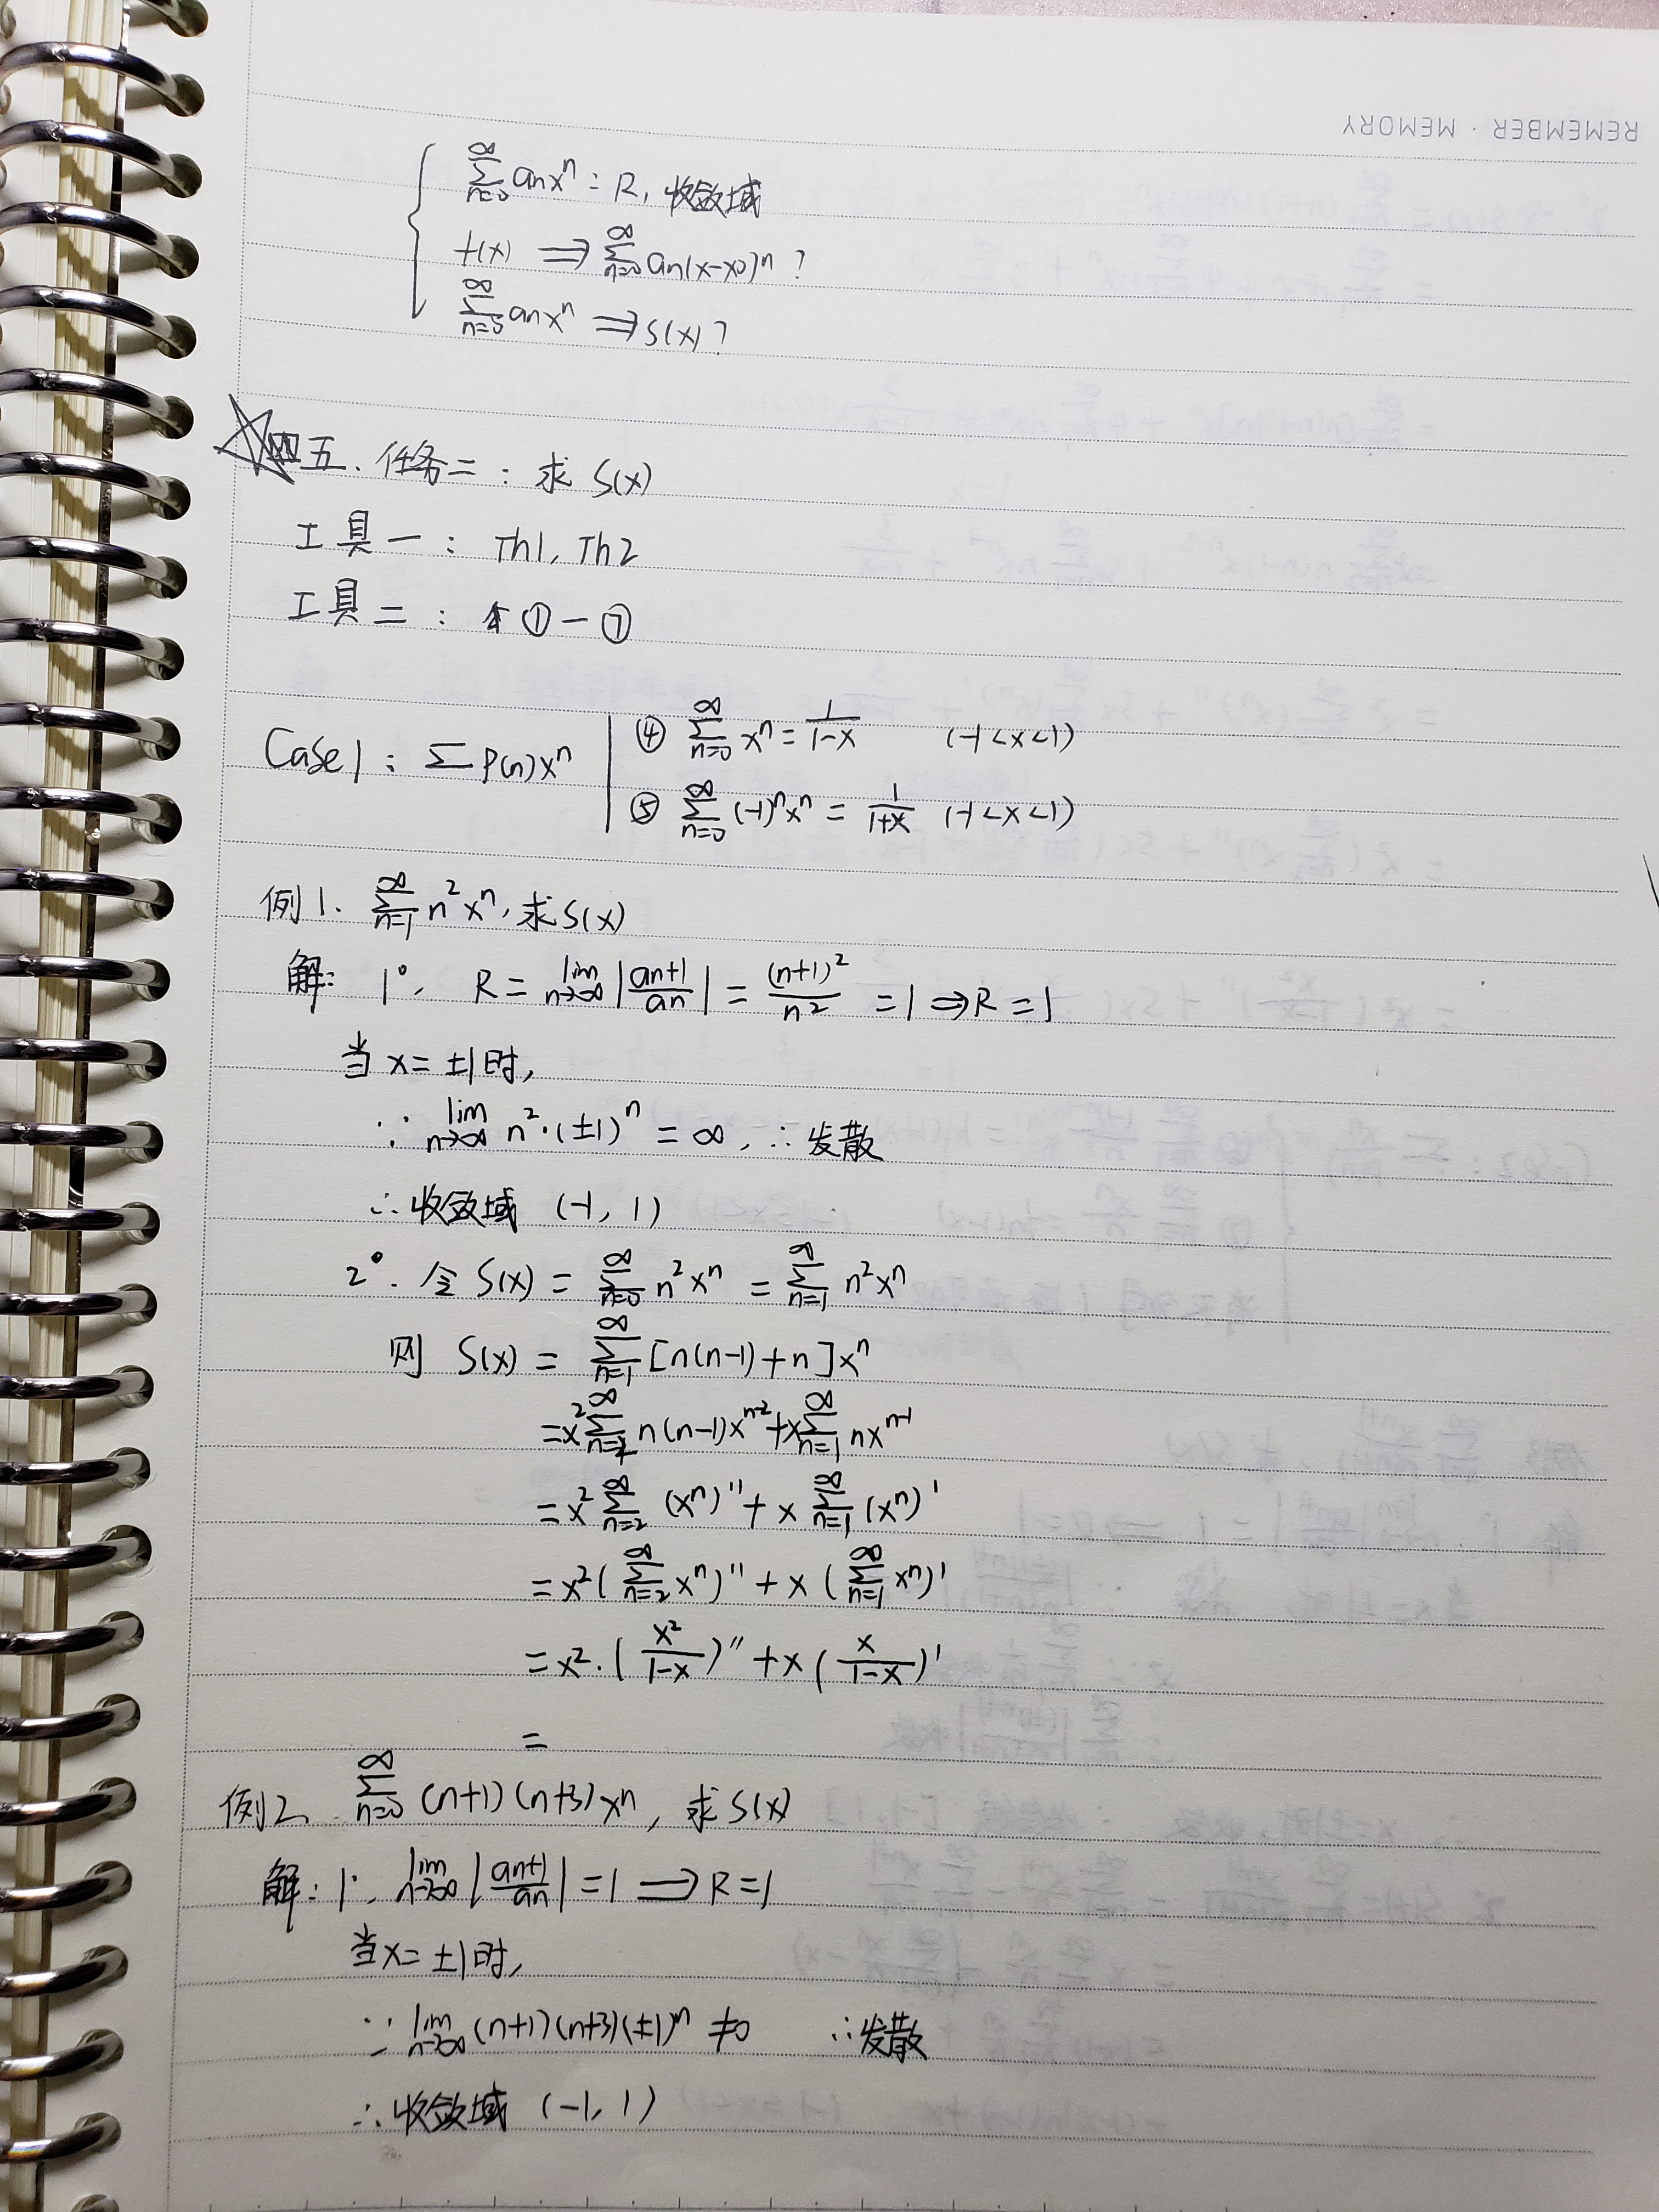 REMEMBER · MEMORY
∑_{n=0}^{∞} aₙxⁿ : R, 收敛域
f(x) ⟹ ∑_{n=0}^{∞} aₙ(x-x₀)ⁿ ?
∑_{n=0}^{∞} aₙxⁿ ⟹ S(x) ?
五. 任务二 : 求 S(x)
工具一 : Th1, Th2
工具二 : ①－⑦
Case1 : ∑P(n)xⁿ | ④ ∑_{n=0}^{∞} xⁿ = 1/(1-x) (-1<x<1)
⑤ ∑_{n=0}^{∞} (-1)ⁿxⁿ = 1/(1+x) (-1<x<1)
例1. ∑_{n=1}^{∞} n²xⁿ, 求S(x)
解: 1°. R = lim_{n→∞} |aₙ₊₁/aₙ| = (n+1)²/n² = 1 ⇒ R = 1
当 x = ±1时,
∵ lim_{n→∞} n²·(±1)ⁿ = ∞, ∴发散
∴收敛域 (-1, 1)
2°. 令 S(x) = ∑_{n=0}^{∞} n²xⁿ = ∑_{n=1}^{∞} n²xⁿ
则 S(x) = ∑_{n=1}^{∞} [n(n-1)+n]xⁿ
= x²∑_{n=2}^{∞} n(n-1)xⁿ⁻² + x∑_{n=1}^{∞} nxⁿ⁻¹
= x² ∑_{n=2}^{∞} (xⁿ)'' + x ∑_{n=1}^{∞} (xⁿ)'
= x² (∑_{n=2}^{∞} xⁿ)'' + x (∑_{n=1}^{∞} xⁿ)'
= x² · (x²/(1-x))'' + x (x/(1-x))'
=
例2. ∑_{n=0}^{∞} (n+1)(n+3)xⁿ, 求S(x)
解: 1°. lim_{n→∞} |aₙ₊₁/aₙ| = 1 ⟹ R = 1
当x = ±1时,
∵ lim_{n→∞} (n+1)(n+3)(±1)ⁿ ≠0 ∴发散
∴收敛域 (-1, 1)